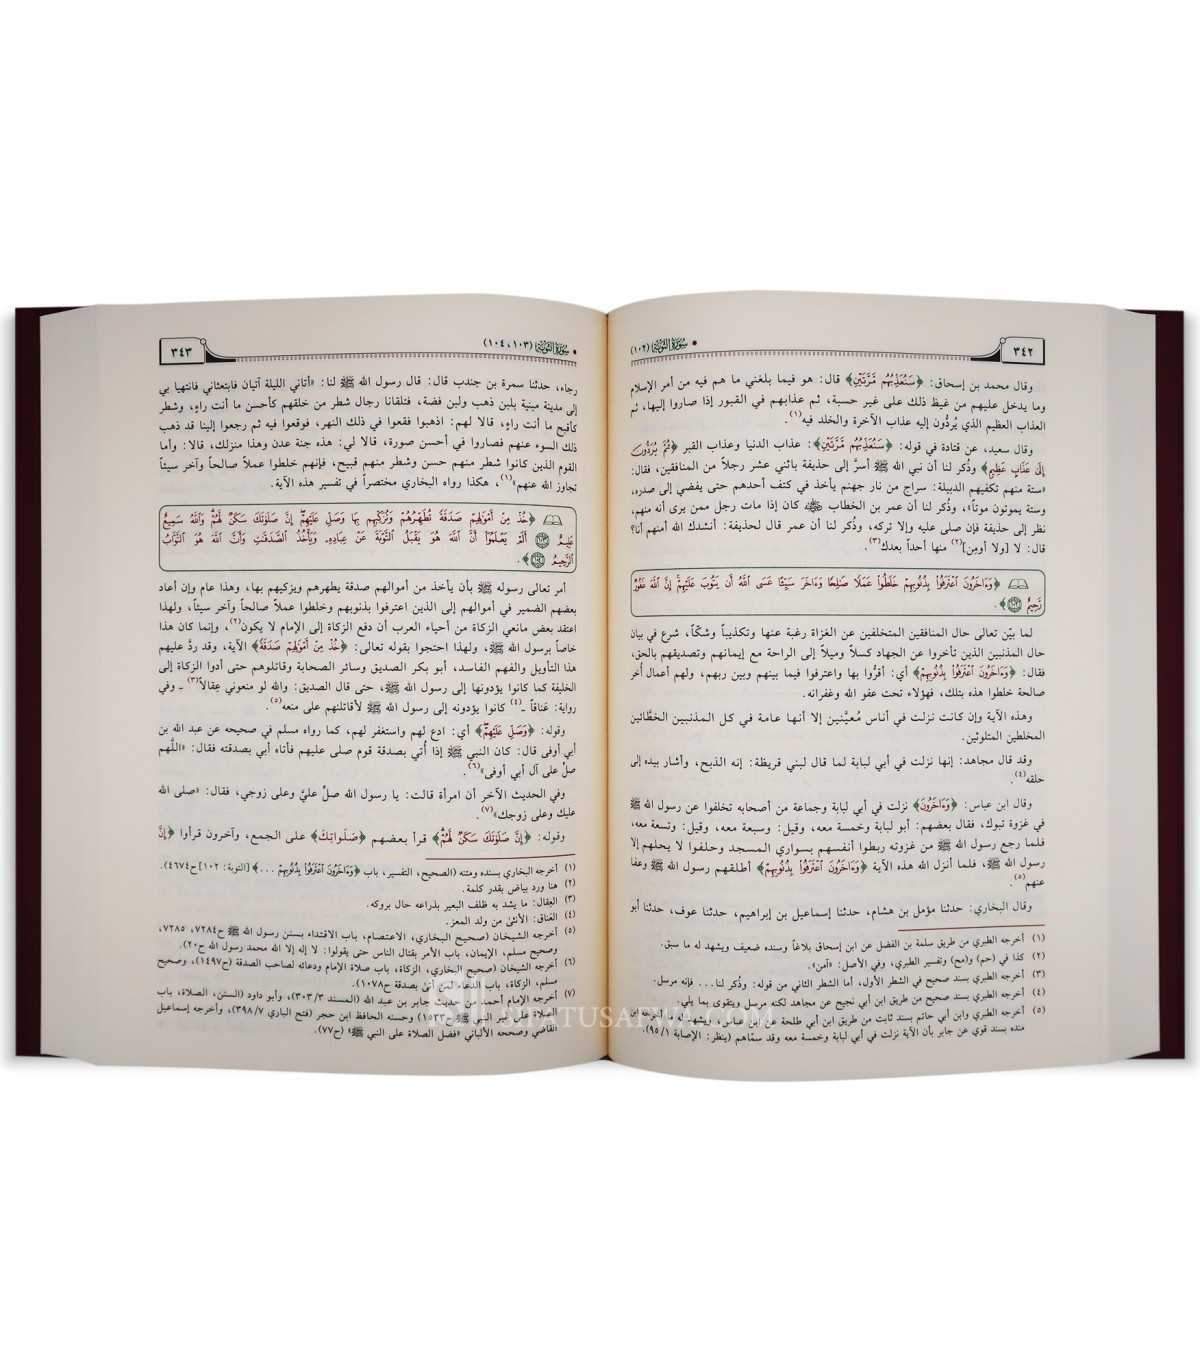 ٣٤٢
سُورَةُ التَّوْبَةِ (١٠٢)
وقال محمد بن إسحاق: ﴿سَنُعَذِّبُهُم مَّرَّتَيْنِ﴾ قال: هو فيما بلغني ما هم فيه من أمر الإسلام
وما يدخل عليهم من غيظ ذلك على غير حسبة، ثم عذابهم في القبور إذا صاروا إليها، ثم
العذاب العظيم الذي يُردُّون إليه عذاب الآخرة والخلد فيه(١).
وقال سعيد، عن قتادة في قوله: ﴿سَنُعَذِّبُهُم مَّرَّتَيْنِ﴾: عذاب الدنيا وعذاب القبر ﴿ثُمَّ يُرَدُّونَ
إِلَىٰ عَذَابٍ عَظِيمٍ﴾ وذُكر لنا أن نبي الله ﷺ أسرَّ إلى حذيفة باثني عشر رجلاً من المنافقين، فقال:
«ستة منهم تكفيهم الدبيلة: سراج من نار جهنم يأخذ في كتف أحدهم حتى يفضي إلى صدره،
وستة يموتون موتاً»، وذُكر لنا أن عمر بن الخطاب كان إذا مات رجل ممن يرى أنه منهم،
نظر إلى حذيفة فإن صلى عليه وإلا تركه، وذُكر لنا أن عمر قال لحذيفة: أنشدك الله أمنهم أنا؟
قال: لا [ولا أومِن](٢) منها أحداً بعدك(٣).
﴿وَءَاخَرُونَ ٱعْتَرَفُوا۟ بِذُنُوبِهِمْ خَلَطُوا۟ عَمَلًا صَـٰلِحًا وَءَاخَرَ سَيِّئًا عَسَى ٱللَّهُ أَن يَتُوبَ عَلَيْهِمْ إِنَّ ٱللَّهَ غَفُورٌ
رَّحِيمٌ ١٠٢﴾.
لما بيّن تعالى حال المنافقين المتخلفين عن الغزاة رغبة عنها وتكذيباً وشكّاً، شرع في بيان
حال المذنبين الذين تأخروا عن الجهاد كسلاً وميلاً إلى الراحة مع إيمانهم وتصديقهم بالحق،
فقال: ﴿وَءَاخَرُونَ ٱعْتَرَفُوا۟ بِذُنُوبِهِمْ﴾ أي: أقرُّوا بها واعترفوا فيما بينهم وبين ربهم، ولهم أعمال أُخر
صالحة خلطوا هذه بتلك، فهؤلاء تحت عفو الله وغفرانه.
وهذه الآية وإن كانت نزلت في أناس مُعيَّنين إلا أنها عامة في كل المذنبين الخطَّائين
المخلطين المتلوثين.
وقد قال مجاهد: إنها نزلت في أبي لبابة لما قال لبني قريظة: إنه الذبح، وأشار بيده إلى
حلقه(٤).
وقال ابن عباس: ﴿وَءَاخَرُونَ﴾ نزلت في أبي لبابة وجماعة من أصحابه تخلفوا عن رسول الله ﷺ
في غزوة تبوك، فقال بعضهم: أبو لبابة وخمسة معه، وقيل: وسبعة معه، وقيل: وتسعة معه،
فلما رجع رسول الله ﷺ من غزوته ربطوا أنفسهم بسواري المسجد وحلفوا لا يحلهم إلا
رسول الله ﷺ، فلما أنزل الله هذه الآية ﴿وَءَاخَرُونَ ٱعْتَرَفُوا۟ بِذُنُوبِهِمْ﴾ أطلقهم رسول الله ﷺ وعفا
عنهم(٥).
وقال البخاري: حدثنا مؤمل بن هشام، حدثنا إسماعيل بن إبراهيم، حدثنا عوف، حدثنا أبو
(١) أخرجه الطبري من طريق سلمة بن الفضل عن ابن إسحاق بلاغاً وسنده ضعيف ويشهد له ما سبق.
(٢) كذا في (حم) و(مح) وتفسير الطبري، وفي الأصل: «آمن».
(٣) أخرجه الطبري بسند صحيح في الشطر الأول، أما الشطر الثاني من قوله: وذُكر لنا... فإنه مرسل.
(٤) أخرجه الطبري بسند صحيح من طريق ابن أبي نجيح عن مجاهد لكنه مرسل ويتقوى بما يلي.
(٥) أخرجه الطبري وابن أبي حاتم بسند ثابت من طريق ابن أبي طلحة عن ابن عباس، ويشهد له ما أخرجه ابن
منده بسند قوي عن جابر بأن الآية نزلت في أبي لبابة وخمسة معه وقد سمّاهم (ينظر: الإصابة ٩٥/١).
سُورَةُ التَّوْبَةِ (١٠٣، ١٠٤)
٣٤٣
رجاء، حدثنا سمرة بن جندب قال: قال رسول الله ﷺ لنا: «أتاني الليلة آتيان فابتعثاني فانتهيا بي
إلى مدينة مبنية بلبن ذهب ولبن فضة، فتلقانا رجال شطر من خلقهم كأحسن ما أنت راءٍ، وشطر
كأقبح ما أنت راءٍ، قالا لهم: اذهبوا فقعوا في ذلك النهر، فوقعوا فيه ثم رجعوا إلينا قد ذهب
ذلك السوء عنهم فصاروا في أحسن صورة، قالا لي: هذه جنة عدن وهذا منزلك، قالا: وأما
القوم الذين كانوا شطر منهم حسن وشطر منهم قبيح، فإنهم خلطوا عملاً صالحاً وآخر سيئاً
تجاوز الله عنهم»(١)، هكذا رواه البخاري مختصراً في تفسير هذه الآية.
﴿خُذْ مِنْ أَمْوَٰلِهِمْ صَدَقَةً تُطَهِّرُهُمْ وَتُزَكِّيهِم بِهَا وَصَلِّ عَلَيْهِمْ إِنَّ صَلَوٰتَكَ سَكَنٌ لَّهُمْ وَٱللَّهُ سَمِيعٌ
عَلِيمٌ ١٠٣ أَلَمْ يَعْلَمُوٓا۟ أَنَّ ٱللَّهَ هُوَ يَقْبَلُ ٱلتَّوْبَةَ عَنْ عِبَادِهِۦ وَيَأْخُذُ ٱلصَّدَقَـٰتِ وَأَنَّ ٱللَّهَ هُوَ ٱلتَّوَّابُ
ٱلرَّحِيمُ ١٠٤﴾.
أمر تعالى رسوله ﷺ بأن يأخذ من أموالهم صدقة يطهرهم ويزكيهم بها، وهذا عام وإن أعاد
بعضهم الضمير في أموالهم إلى الذين اعترفوا بذنوبهم وخلطوا عملاً صالحاً وآخر سيئاً، ولهذا
اعتقد بعض مانعي الزكاة من أحياء العرب أن دفع الزكاة إلى الإمام لا يكون(٢)، وإنما كان هذا
خاصاً برسول الله ﷺ، ولهذا احتجوا بقوله تعالى: ﴿خُذْ مِنْ أَمْوَٰلِهِمْ صَدَقَةً﴾ الآية، وقد ردَّ عليهم
هذا التأويل والفهم الفاسد، أبو بكر الصديق وسائر الصحابة وقاتلوهم حتى أدوا الزكاة إلى
الخليفة كما كانوا يؤدونها إلى رسول الله ﷺ، حتى قال الصديق: والله لو منعوني عِقالاً(٣) ـ وفي
رواية: عَناقاً ـ(٤) كانوا يؤدونه إلى رسول الله ﷺ لأقاتلنهم على منعه(٥).
وقوله: ﴿وَصَلِّ عَلَيْهِمْ﴾ أي: ادع لهم واستغفر لهم، كما رواه مسلم في صحيحه عن عبد الله بن
أبي أوفى قال: كان النبي ﷺ إذا أُتي بصدقة قوم صلى عليهم فأتاه أبي بصدقته فقال: «اللَّهم
صلِّ على آل أبي أوفى»(٦).
وفي الحديث الآخر أن امرأة قالت: يا رسول الله صلِّ عليَّ وعلى زوجي، فقال: «صلى الله
عليك وعلى زوجك»(٧).
وقوله: ﴿إِنَّ صَلَوٰتَكَ سَكَنٌ لَّهُمْ﴾ قرأ بعضهم ﴿صَلَواتِكَ﴾ على الجمع، وآخرون قرأوا ﴿إِنَّ
(١) أخرجه البخاري بسنده ومتنه (الصحيح، التفسير، باب ﴿وَءَاخَرُونَ ٱعْتَرَفُوا۟ بِذُنُوبِهِمْ ...﴾ [التوبة: ١٠٢] ح٤٦٧٤).
(٢) هنا ورد بياض بقدر كلمة.
(٣) العِقال: ما يشد به ظلف البعير بذراعه حال بروكه.
(٤) العَناق: الأنثى من ولد المعز.
(٥) أخرجه الشيخان (صحيح البخاري، الاعتصام، باب الاقتداء بسنن رسول الله ﷺ ح٧٢٨٤، ٧٢٨٥،
وصحيح مسلم، الإيمان، باب الأمر بقتال الناس حتى يقولوا: لا إله إلا الله محمد رسول الله ح٢٠).
(٦) أخرجه الشيخان (صحيح البخاري، الزكاة، باب صلاة الإمام ودعائه لصاحب الصدقة (ح١٤٩٧)، وصحيح
مسلم، الزكاة، باب الدعاء لمن أتى بصدقة ح١٠٧٨).
(٧) أخرجه الإمام أحمد من حديث جابر بن عبد الله (المسند ٣٠٣/٣)، وأبو داود (السنن، الصلاة، باب
الصلاة على غير النبي ﷺ ح١٥٣٣) وحسنه الحافظ ابن حجر (فتح الباري ٣٩٨/٧)، وأخرجه إسماعيل
القاضي وصححه الألباني «فضل الصلاة على النبي ﷺ» (ح٧٧).